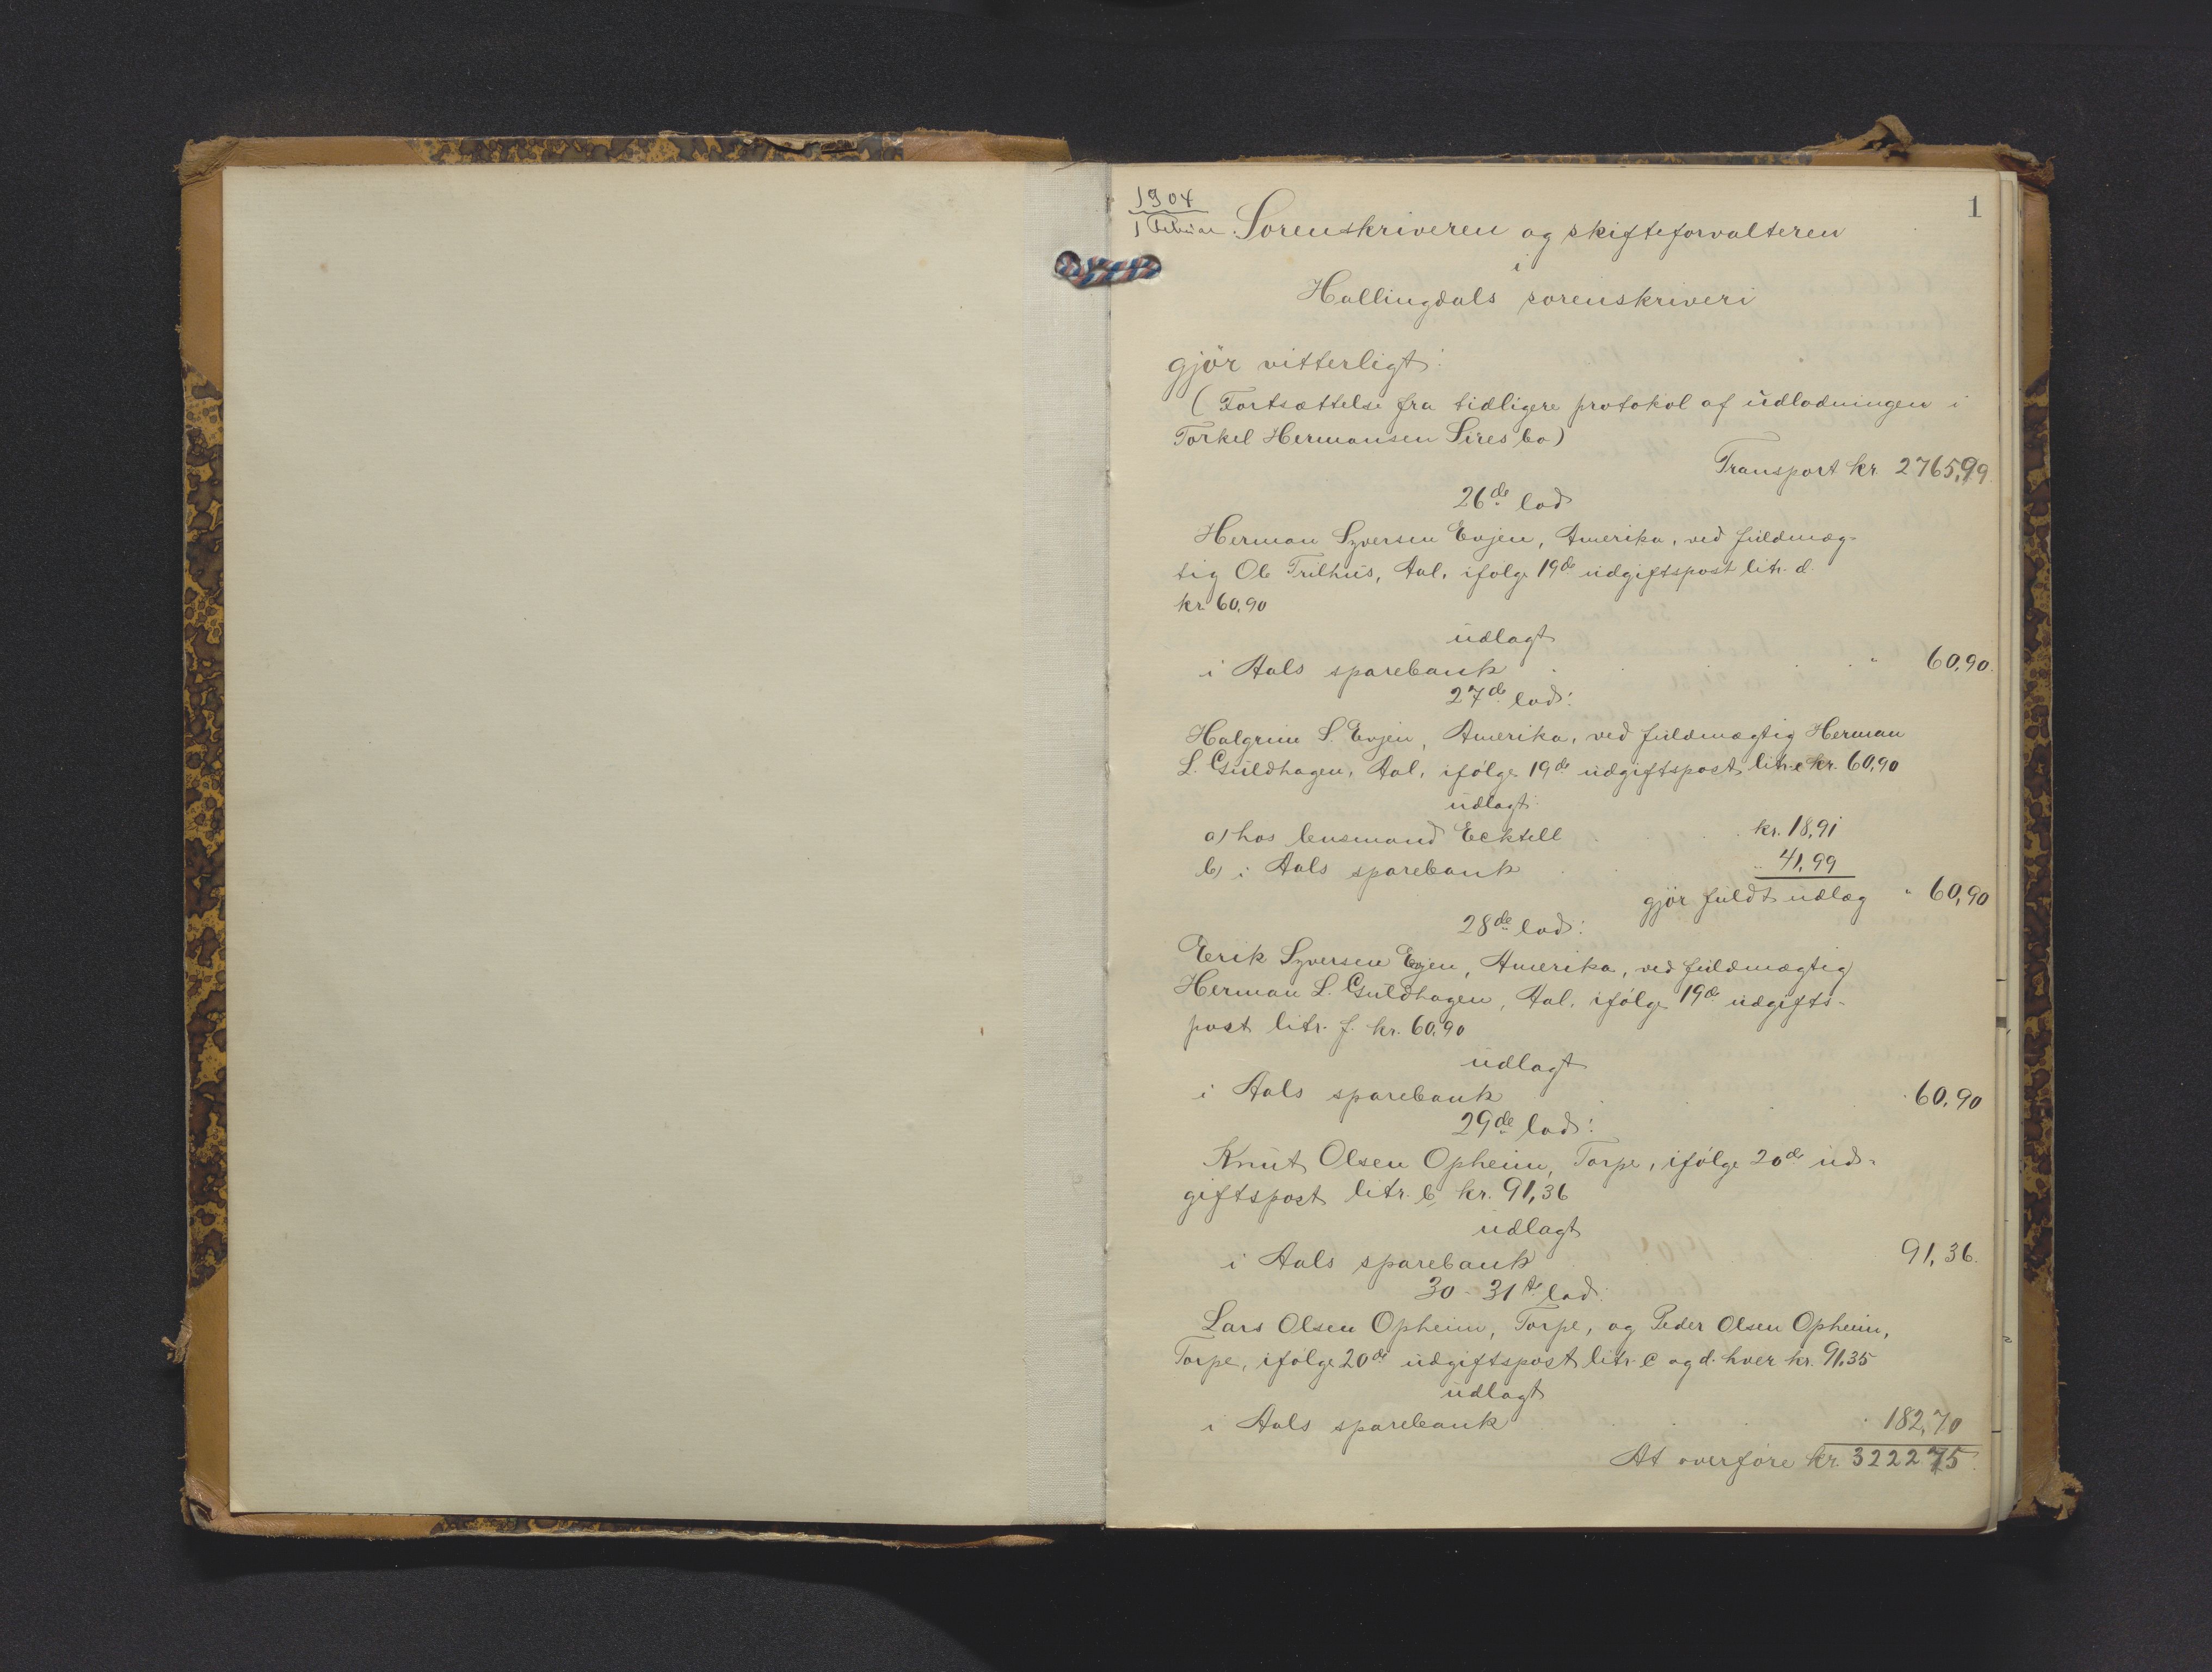 1904
1 Februar.
1
Sorenskriveren og skifteforvalteren
i
Hallingdals sorenskriveri
gjör vitterligt:
(Fortsættelse fra tidligere protokol af udlodningen i
Torkel Hermansen Sires bo)
Transport kr. 2765,99
26de lod
Herman Syversen Evjen, Amerika, ved fuldmæg-
tig Ole Trilhus, Aal, ifølge 19de udgiftspost litr. d.
kr. 60,90
udlagt
i Aals sparebank . . . . " 60,90.
27de lod:
Halgrim S. Evjen, Amerika, ved fuldmægtig Herman
L. Guldhagen, Aal, ifølge 19de udgiftspost litr. e kr. 60,90
udlagt:
a) hos lensmand Ecktell . . . kr. 18,91
b) i Aals sparebank . . . " 41,99
gjör fuldt udlæg " 60,90
28de lod:
Erik Syversen Evjen, Amerika, ved fuldmægtig
Herman L. Guldhagen, Aal, ifølge 19de udgifts-
post litr. f. kr. 60,90
udlagt
i Aals sparebank . . . . 60,90
29de lod:
Knut Olsen Opheim, Torpe, ifølge 20de ud-
giftspost litr. b, kr. 91,36
udlagt
i Aals sparebank . . . 91,36.
30 - 31te lod:
Lars Olsen Opheim, Torpe, og Peder Olsen Opheim,
Torpe, ifølge 20de udgiftspost litr. c og d. hver kr. 91,35
udlagt
i Aals sparebank . . . . 182,70
At overføre kr. 3222 75.